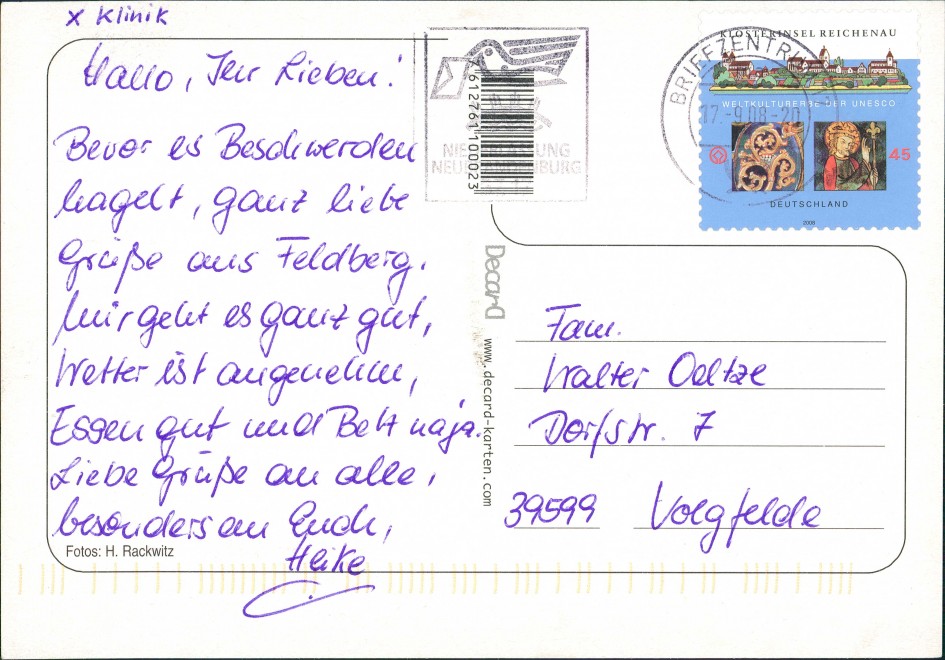 x Klinik
Hallo, Ihr Lieben!
Bevor es Beschwerden
hagelt, ganz liebe
Grüße aus Feldberg.
Mir geht es ganz gut,
Wetter ist angenehm,
Essen gut und Bett naja.
Liebe Grüße an alle,
besonders an Euch,
Heike
Fotos: H. Rackwitz
4612761100023
NIEDERLASSUNG
NEUBRANDENBURG
BRIEFZENTRUM
17.-9.08-20
KLOSTERINSEL REICHENAU
WELTKULTURERBE DER UNESCO
45
DEUTSCHLAND
2008
Decard
www.decard-karten.com
Fam.
Walter Oeltze
Dorfstr. 7
39599 Volgfelde